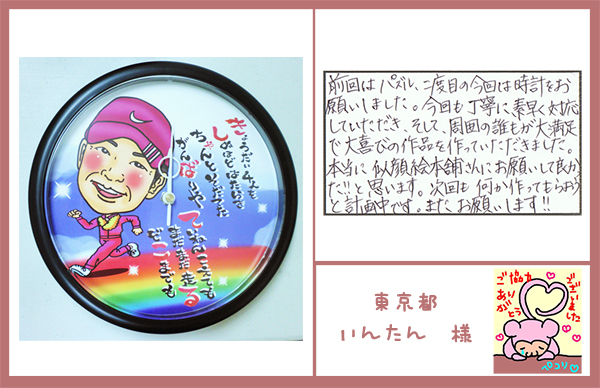 きょうだい4人を
ちゃんと
がんばりや
ていねんこえても
まだまだ走る
どこまでも
前回はパズル、二度目の今回は時計をお
願いしました。今回も丁寧に素早く対応
していただき、そして、周囲の誰もが大満足
で大喜びの作品を作っていただきました。
本当に似顔絵本舗さんにお願いして良か
った!!と思います。次回も何か作ってもらおう
と計画中です。また、お願いします!!
東京都
いんたん 様
ご協力
ありがとう
ございました
ペコリ